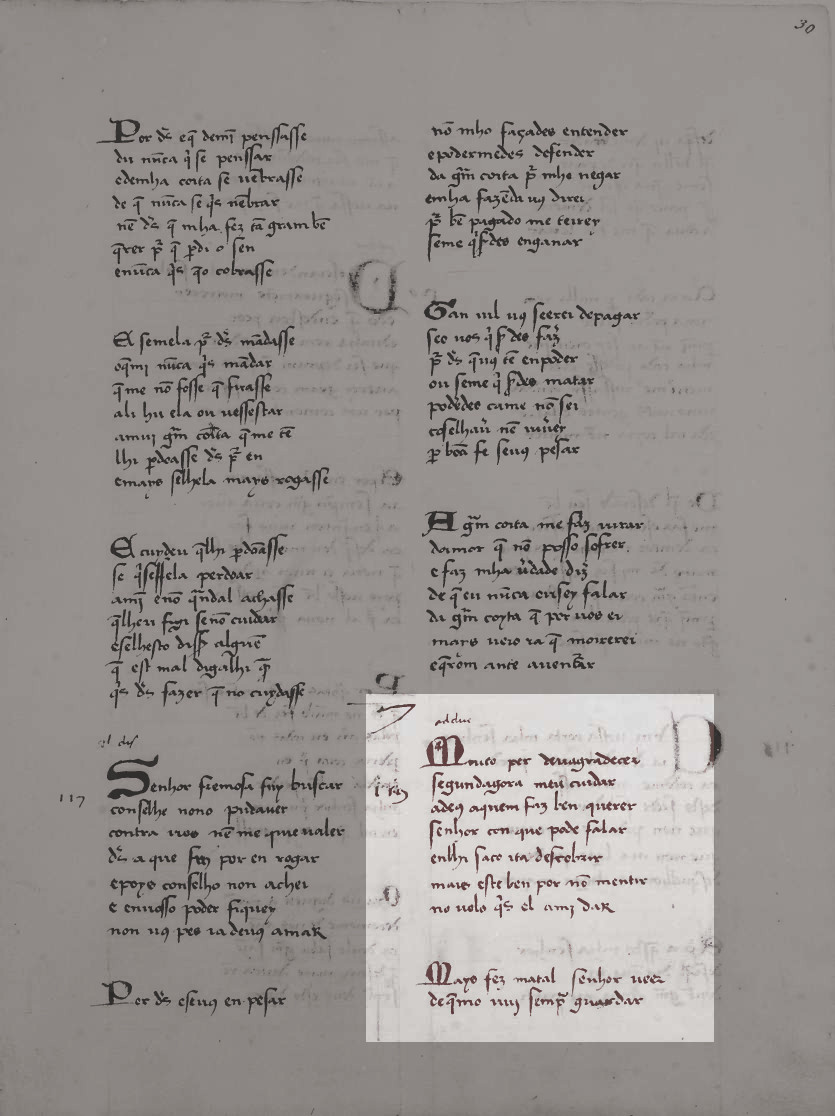 30
Por ds̄ e q̄ demī penssasse
du nūca q̄ se penssar
edemha coita se nēbrasse
de q̄ nūca se q̄s nēbrar
nē ds̄ q̄ mha fez tā gram bē
q̄rer pr̄ q̄ p̄di o sen
enūca q̄s q̄o cobrasse
E semela pr̄ ds̄ mādasse
oq̄mi nūca q̄s mādar
q̄me nō fosse q̄ firasse
ali hu ela ou uessestar
amui grm̄ coita q̄me tē
lhi p̄doasse ds̄ pr̄ en
emays selhela mays rogasse
E cuydeu q̄lhi p̄doasse
se q̄sessela perdoar
amī enō q̄ndal achasse
q̄lheu fugi senō cuidar
eselhesto diss alguē
q̄ est mal digalhi q̄
q̄s ds̄ fazer q̄ no cuydasse
117
Senhor fremosa fuy buscar
conselhe nono pudauer
contra uos nē me queualer
ds̄ a que fuy por en rogar
epoys conselho non achei
e enuosso poder fiquey
non uꝯ pes ia deuꝯ amaR
Por ds̄ eseuꝯ en pesar
nō mho façades entender
epodermedes defender
da grm̄ coita pr̄ mhe negar
emha fazēda uꝯ direi
pr̄ bē pagado me terrey
seme q̄s̄des enganar
Gran uil uꝯ seerei depagar
seo uos q̄s̄des faz̄
pr̄ ds̄ q̄uꝯ tē enpoder
ou seme q̄s̄des matar
poded̄es came nō sei
cōselhar̄ nē uiuer
p̄ boa fe seuꝯ pesar
A grm̄ coita me faz uirar
damor q̄ nō posso sofrer
e faz mha ūdade diz̄
de q̄ eu nūca ousey falar
di grm̄ coyta q̄ por uos ei
mays uero ra q̄ moirerei
eq̄rom ante auentār
Muito per deuagradecer
segundagora meu cuidar
adeꝯ aquem faz ben querer
senhor con que pode falar
enlhi saco ita descobrir
mais este ben por nō mentir
no uolo q̄s el ami daR
Mayo fez matal senhor ueer
deq̄mo uuy sempr̄ guardar